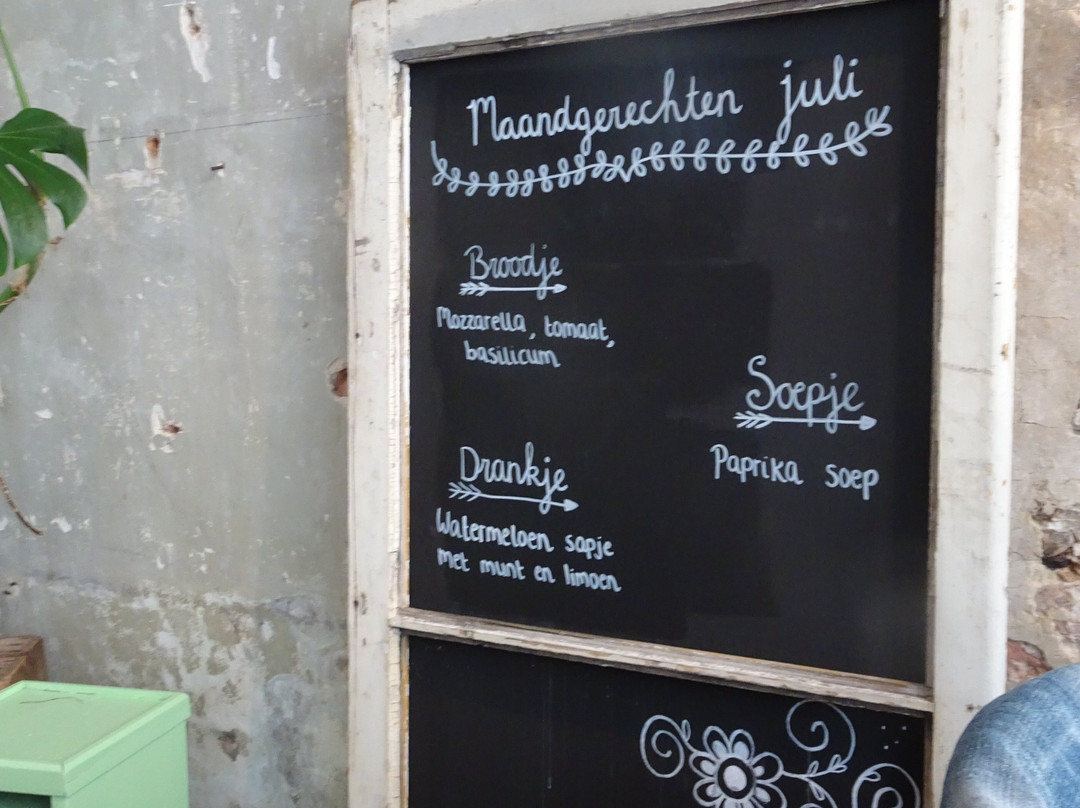 Maandgerechten juli
Broodje
Mozzarella, tomaat,
basilicum
Soepje
Paprika soep
Drankje
Watermeloen sapje
met munt en limoen